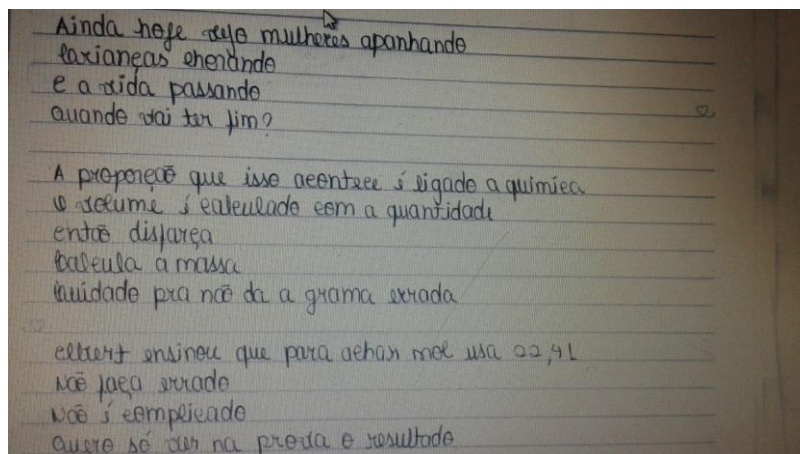 Ainda hoje vejo mulheres apanhando
crianças chorando
e a vida passando
quando vai ter fim?
A proporção que isso acontece é ligado a química
o volume é calculado com a quantidade
então disfarça
calcula a massa
cuidado pra não da a grama errada
ensinou que para achar mol usa 22,4L
Não faça errado
Não é complicado
quero só ver na prova o resultado